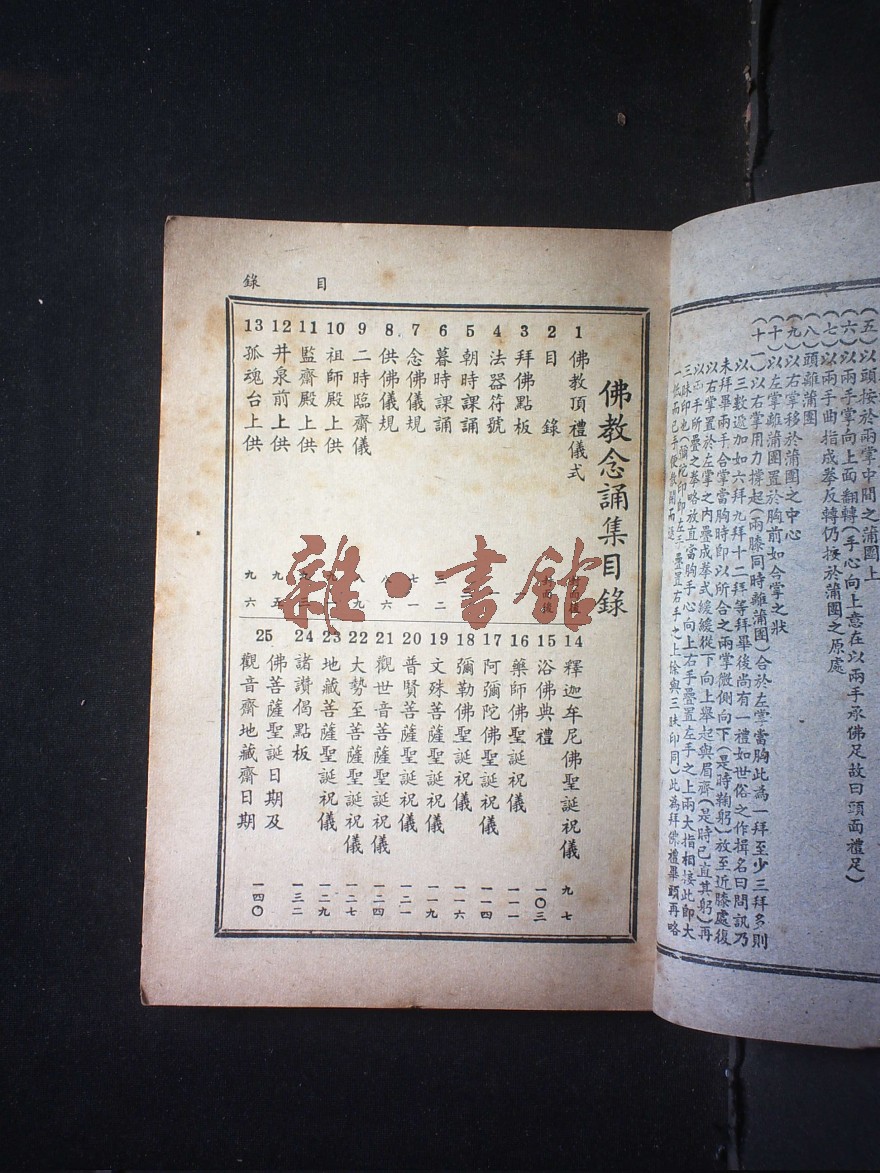 五)以頭按於兩掌中間之蒲團上
(六)以兩手掌向上面翻轉(手心向上意在以兩手承佛足故曰頭面禮足)
(七)以兩手曲指成拳反轉仍按於蒲團之原處
(八)頭離蒲團
(九)以右掌移於蒲團之中心
(十)以左掌離蒲團置於胸前如合掌之狀
(十一)以右掌用力撐起(兩膝同時離蒲團)合於左掌當胸此為一拜至少三拜多則
以三數遞加如六拜九拜十二拜等拜畢後尚有一禮如世俗之作揖名曰問訊乃
未拜畢兩手合掌當胸時即以所合之兩掌微側向下(是時鞠躬)放至近膝處復
以右掌置於左掌之內疊成拳式緩緩從下向上舉起與眉齊(是時已直其躬)再
以兩手所疊之拳略放直當胸手向上右手疊置左手之上兩大指相接此即大
三昧印也(彌陀印即左手疊置右手之上餘與三昧印同)此為拜佛禮畢頭再略
一低而已手便放開而退
目錄
佛教念誦集目錄
1 佛教頂禮儀式
2 目錄
3 拜佛點板
4 法器符號
5 朝時課誦
6 暮時課誦 三二
7 念佛儀規 七一
8 供佛儀規 八六
9 二時臨齋儀 八九
10 祖師殿上供
11 監齋殿上供
12 井泉前上供 九五
13 孤魂台上供 九六
14 釋迦牟尼佛聖誕祝儀 九七
15 浴佛典禮 一〇三
16 藥師佛聖誕祝儀 一一一
17 阿彌陀佛聖誕祝儀 一一四
18 彌勒佛聖誕祝儀 一一六
19 文殊菩薩聖誕祝儀 一一九
20 普賢菩薩聖誕祝儀 一二一
21 觀世音菩薩聖誕祝儀 一二四
22 大勢至菩薩聖誕祝儀 一二七
23 地藏菩薩聖誕祝儀 一二九
24 諸讚偈點板 一三二
25 佛菩薩聖誕日期及
觀音齋地藏齋日期 一四〇
雜·書館